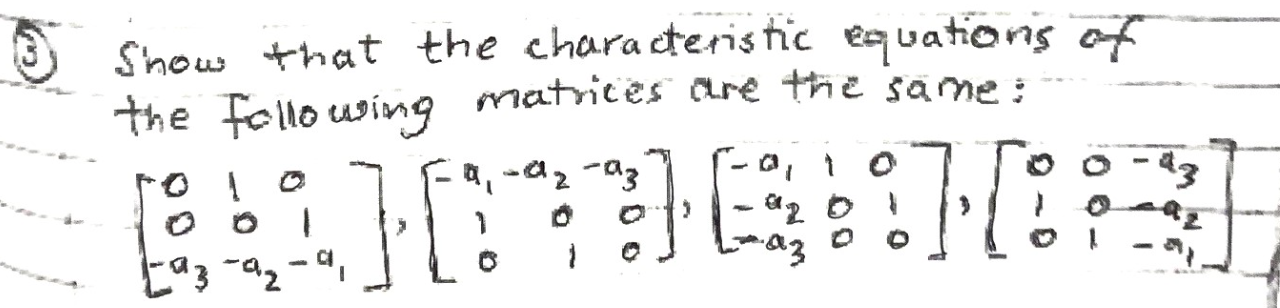 ③ Show that the characteristic equations of
the following matrices are the same:
[0 1 0], [-a₁ -a₂ -a₃], [-a₁ 1 0], [0 0 -a₃]
[0 0 1], [1 0 0], [-a₂ 0 1], [1 0 -a₂]
[-a₃ -a₂ -a₁] [0 1 0] [-a₃ 0 0] [0 1 -a₁]